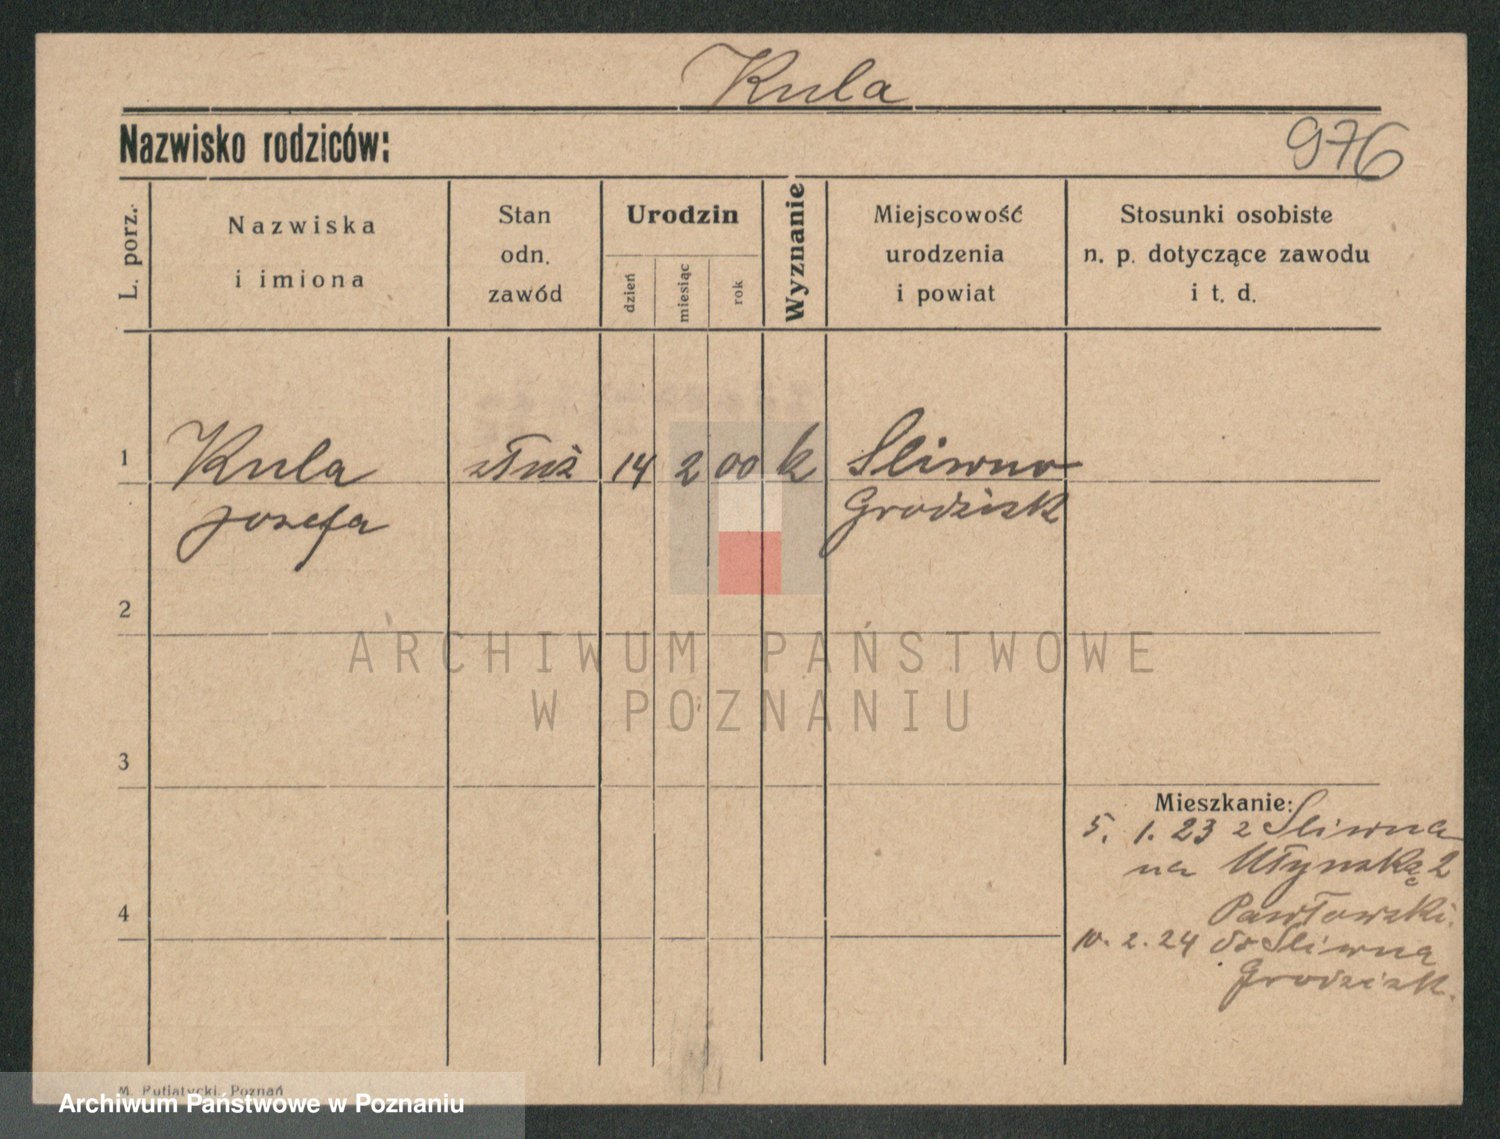 Kula
Nazwisko rodziców:
976
L. porz.
Nazwiska
i imiona
Stan
odn.
zawód
Urodzin
dzień
miesiąc
rok
Wyznanie
Miejscowość
urodzenia
i powiat
Stosunki osobiste
n. p. dotyczące zawodu
i t. d.
1
Kula
Josefa
służ
14
2
00
k
Sliwno
Grodzisk
2
3
4
Mieszkanie:
5. 1. 23 z Sliwna
na Młyńską 2
Pawłowski.
10. 2. 24 do Sliwna
Grodzisk.
M. Putiatycki, Poznań
ARCHIWUM PAŃSTWOWE
W POZNANIU
Archiwum Państwowe w Poznaniu